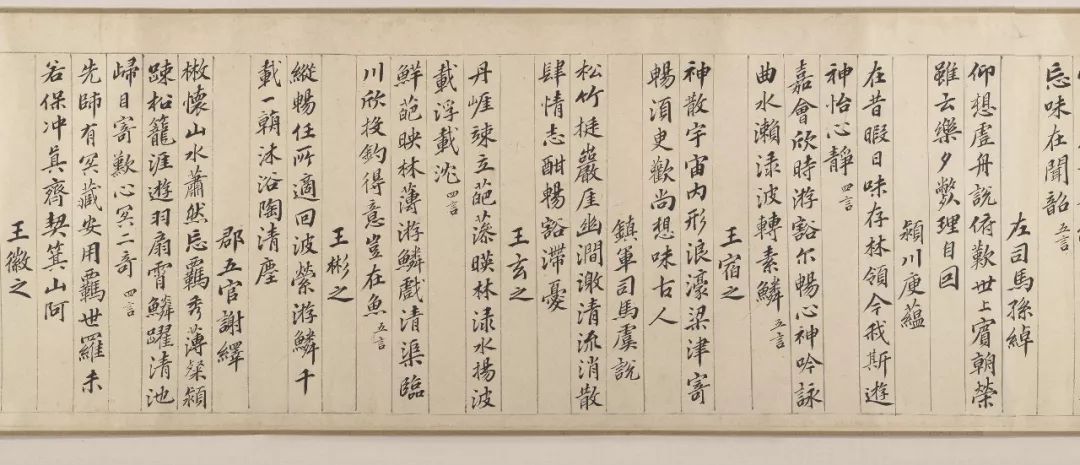 忘味在聞韶 五言
左司馬孫綽
仰想虛舟說俯歎世上賓朝榮
雖云樂夕斃理自回
潁川庾蘊
在昔暇日味存林領今我斯遊
神怡心靜 四言
嘉會欣時游豁尒暢心神吟詠
曲水瀨淥波轉素鱗 五言
王宿之
神散宇宙內形浪濠梁津寄
暢須臾歡尚想味古人
鎮軍司馬虞說
松竹挺巖崖幽澗激清流消散
肆情志酣暢豁滯憂
王玄之
丹崖竦立葩藻暎林淥水揚波
載浮載沈 四言
鮮葩映林薄游鱗戲清渠臨
川欣投釣得意豈在魚 五言
王彬之
縱暢任所適回波縈游鱗千
載一朝沐浴陶清塵
郡五官謝繹
散懷山水蕭然忘羈秀薄粲潁
踈松籠涯遊羽扇霄鱗躍清池
歸目寄歎心冥二奇 四言
先師有冥藏安用羈世羅未
若保冲真齊契箕山阿
王徽之